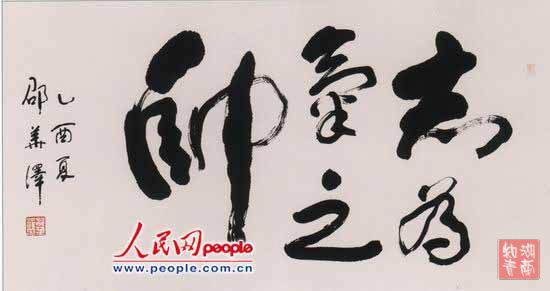 志為
氣之
帥
乙酉夏
邵華澤
人民网 people
www.people.com.cn